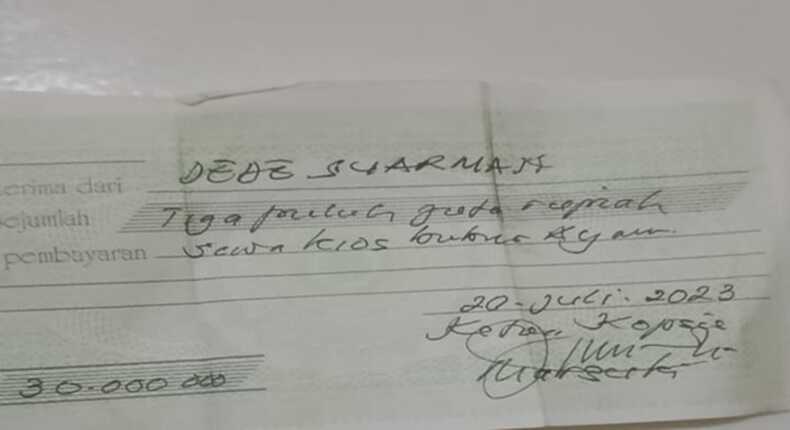 erima dari DEDE SUARMAN
ejumlah Tiga puluh juta rupiah
pembayaran Sewa kios bubur Ayam
20-Juli-2023
Ketua
30.000 000